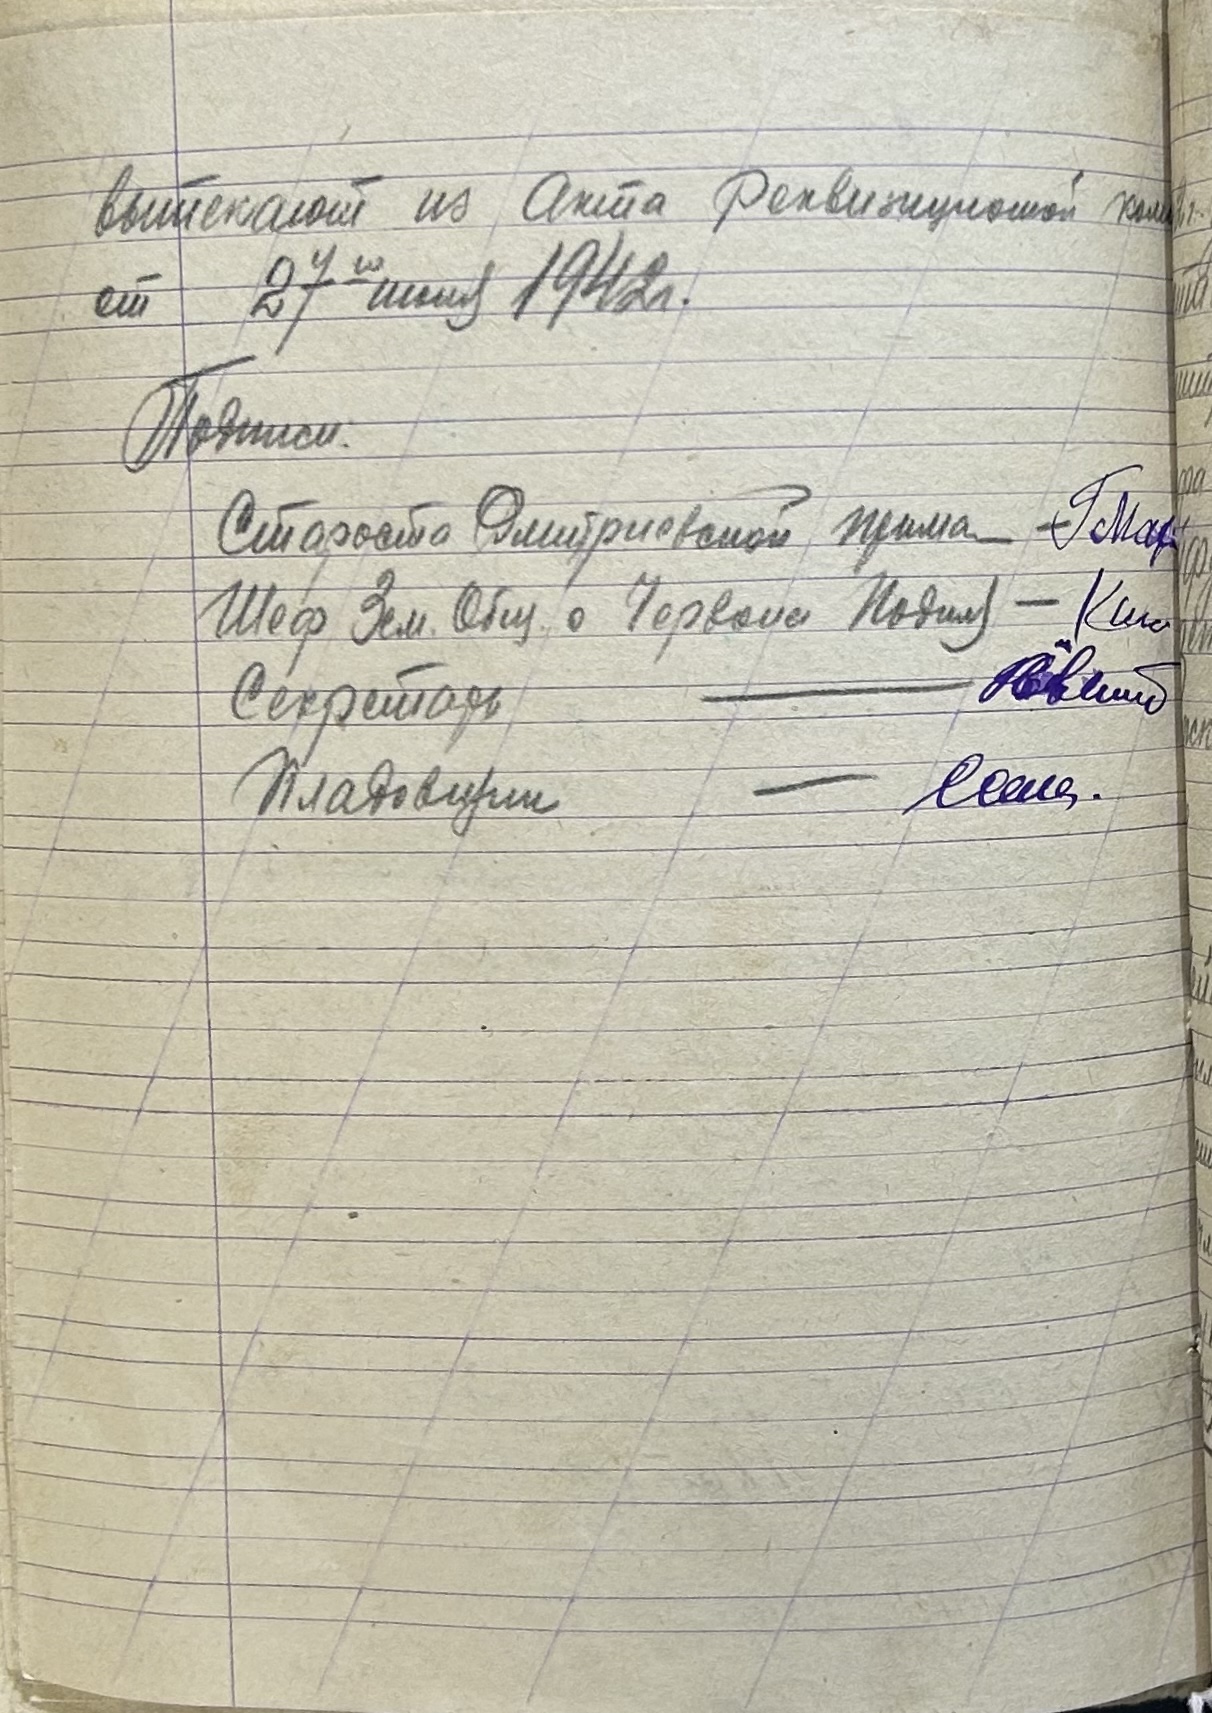 вытекают из Акта Реквизиционной ком
от 27го июля 1942г.
Подписи:
Староста Дмитриевской прима —
Шеф Зем. Общ. о Червона Подиля —
Секретарь —
Кладовщик —